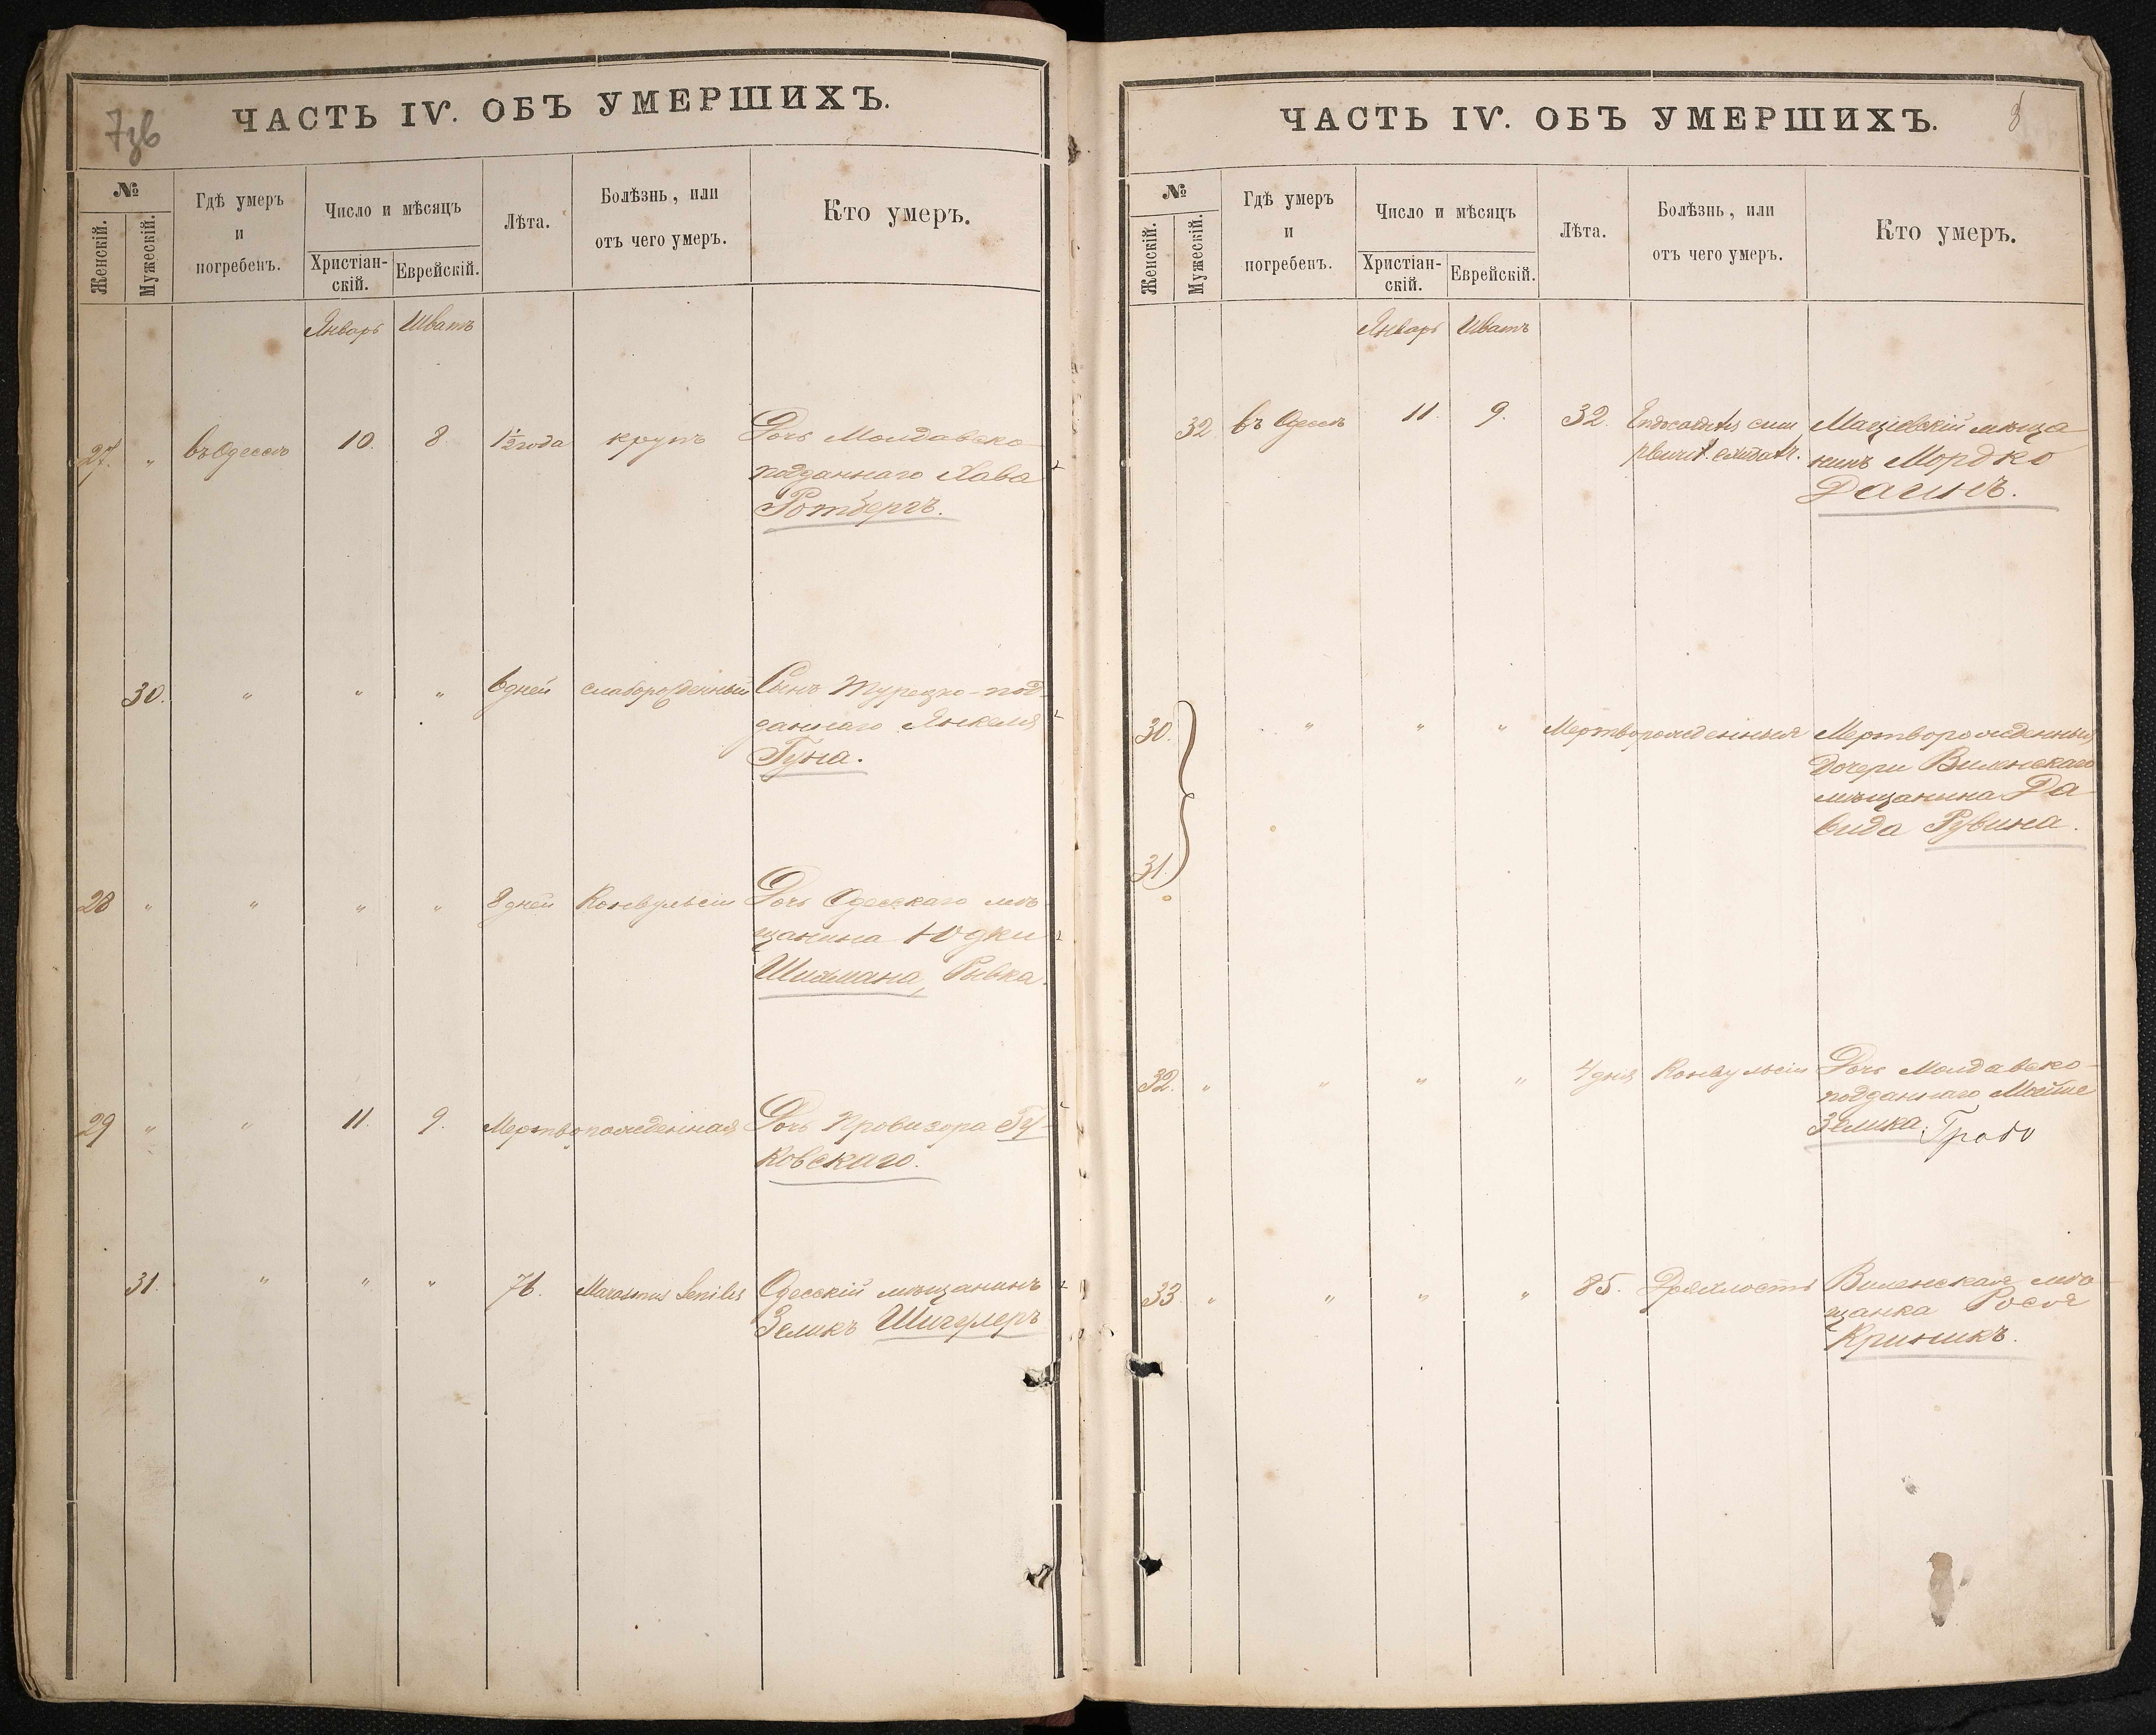 7зв
ЧАСТЬ IV. ОБЪ УМЕРШИХЪ.
№
Женскій.
Мужескій.
Гдѣ умеръ
и
погребенъ.
Число и мѣсяцъ
Христіан-
скій.
Еврейскій.
Лѣта.
Болѣзнь, или
отъ чего умеръ.
Кто умеръ.
Январь Шватъ
27. „ въ Одессѣ 10. 8 1½ года крупъ Дочь Молдавско
подданнаго Хава
Ротбергъ.
30. „ „ „ 6 дней слаборожденный Сынъ Турецко-под
даннаго Янкеля
Гуна.
28 „ „ „ „ 8 дней Конвульсіи Дочь Одесскаго мѣ
щанина Юдки
Шихмана, Рывка.
29 „ „ 11. 9. Мертворожденная Дочь Провизора Гу-
ковскаго.
31. „ „ „ 76. Marasmus Senilis Одесскій мѣщанинъ
Зеликъ
ЧАСТЬ IV. ОБЪ УМЕРШИХЪ.
8
№
Женскій.
Мужескій.
Гдѣ умеръ
и
погребенъ.
Число и мѣсяцъ
Христіан-
скій.
Еврейскій.
Лѣта.
Болѣзнь, или
отъ чего умеръ.
Кто умеръ.
Январь Шватъ
32 въ Одессѣ 11. 9. 32. Endocarditis cum мѣща
нинъ Мордко
Даинъ.
30. „ „ „ Мертворожденныя Мертворожденныя
Дочери Виленскаго
мѣщанина Да
вида Рувина.
31.
32. „ „ „ „ 4 дня Конвульсіи Дочь Молдавско-
подданнаго Мойше
Зелика.
33. „ „ „ „ 85. Дряхлость Виленская мѣ
щанка Рося
Криникъ.